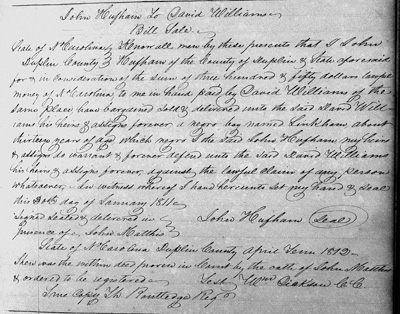 John Hufham to David Williams
Bill Sale
State of N Carolina Know all men by these presents that I John
Duplin County Hufham of the County of Duplin & State aforesaid
for & in consideration of the sum of three hundred & fifty dollars Lawful
money of N Carolina to me in hand paid by David Williams of the
same place have bargained sold & delivered unto the said David Will
iams his heirs & assigns forever a negro boy named Linkham about
thirteen years of age which negro I the said John Hufham my heirs
& assigns do warrant & forever defend unto the said David Williams
his heirs & assigns forever against the lawful claim of any person
whatsoever In witness whereof I have hereunto set my hand & seal
this 30th day of January 1811
Signed sealed & delivered in John Hufham Seal
presence of John Matthis
State of N Carolina Duplin County April Term 1812
Then was the within deed proven in Court by the oath of John Matthis
& ordered to be registered Test Wm Dickson C.C.
True Copy Th Routledge Regr